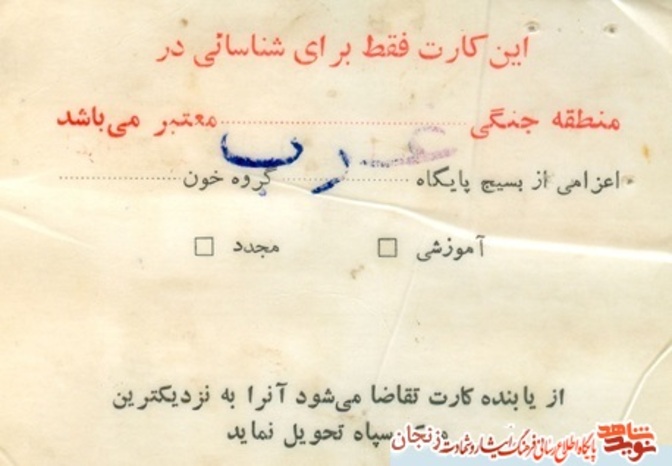 این کارت فقط برای شناسائی در
منطقه جنگی ........................ معتبر می‌باشد
غرب
اعزامی از بسیج پایگاه ........................ گروه خون ........................
آموزشی □ مجدد □
از یابنده کارت تقاضا می‌شود آنرا به نزدیکترین
سپاه تحویل نماید
نوید شاهد پایگاه اطلاع رسانی فرهنگ ایثار و شهادت زنجان